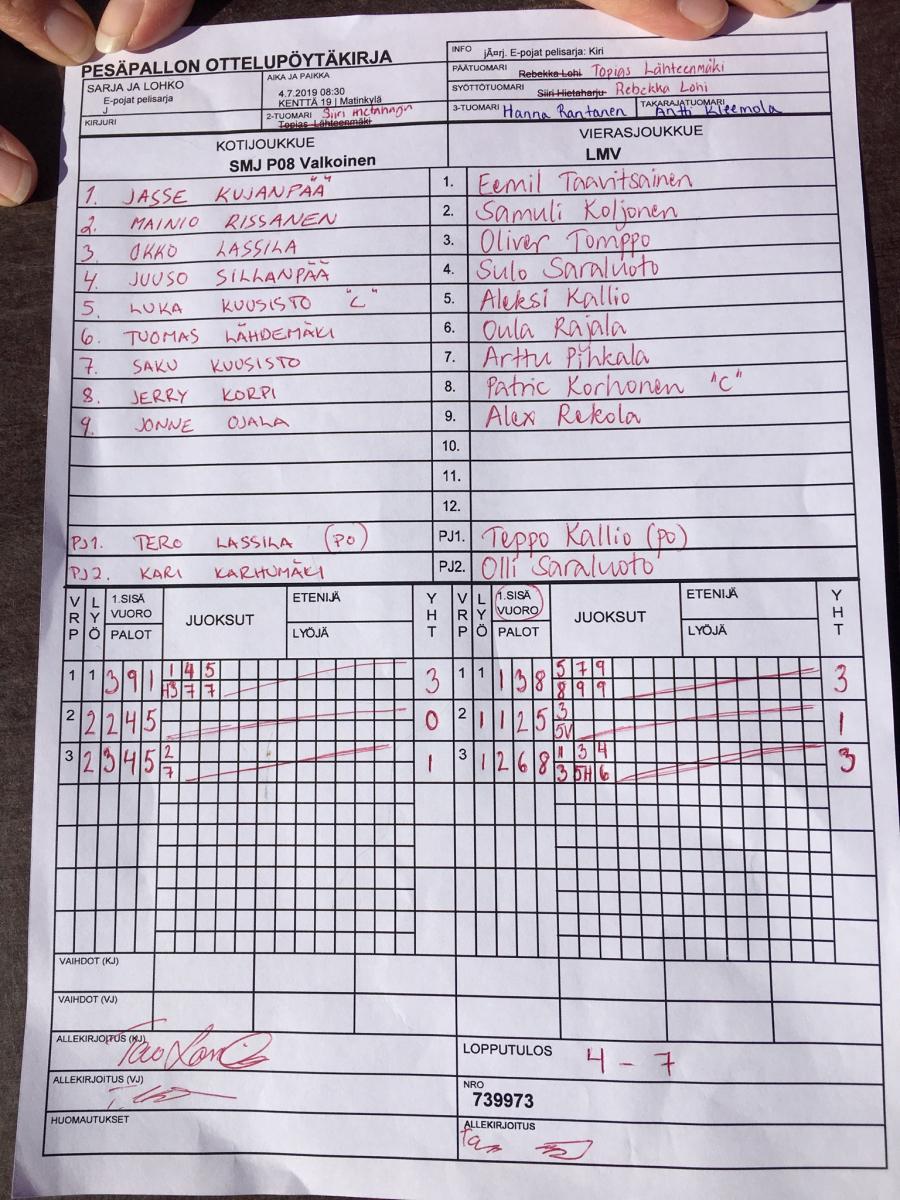 PESÄPALLON OTTELUPÖYTÄKIRJA
INFO jÃ¤rj. E-pojat pelisarja: Kiri
PÄÄTUOMARI Rebekka Lohi Topias Lähteenmäki
SARJA JA LOHKO
E-pojat pelisarja
J
AIKA JA PAIKKA
4.7.2019 08:30
KENTTÄ 19 | Matinkylä
SYÖTTÖTUOMARI Siiri Hietaharju Rebekka Lohi
KIRJURI
2-TUOMARI Siiri
Topias Lähteenmäki
3-TUOMARI Hanna Rantanen
TAKARAJATUOMARI Antti Kleemola
KOTIJOUKKUE
SMJ P08 Valkoinen
VIERASJOUKKUE
LMV
1. JASSE KUJANPÄÄ 1. Eemil Taavitsainen
2. MAINIO RISSANEN 2. Samuli Koljonen
3. OKKO LASSILA 3. Oliver Tomppo
4. JUUSO SILLANPÄÄ 4. Sulo Saraluoto
5. LUKA KUUSISTO "C" 5. Aleksi Kallio
6. TUOMAS LÄHDEMÄKI 6. Oula Rajala
7. SAKU KUUSISTO 7. Arttu Pihkala
8. JERRY KORPI 8. Patric Korhonen "C"
9. JONNE OJALA 9. Alex Rekola
10.
11.
12.
PJ1. TERO LASSILA (PO) PJ1. Teppo Kallio (po)
PJ2. KARI KARHUMÄKI PJ2. Olli Saraluoto
VRP LYÖ 1.SISÄ VUORO PALOT JUOKSUT ETENIJÄ LYÖJÄ YHT VRP LYÖ 1.SISÄ VUORO PALOT JUOKSUT ETENIJÄ LYÖJÄ YHT
1 1 3 9 1 1 4 5 3 1 1 1 3 8 5 7 9 3
7 7 8 9 9
2 2 2 4 5 0 2 1 1 2 5 3 1
5V
3 2 3 4 5 2 1 3 1 2 6 8 1 3 4 3
7 3 5H 6
VAIHDOT (KJ)
VAIHDOT (VJ)
ALLEKIRJOITUS (KJ)
LOPPUTULOS 4 - 7
ALLEKIRJOITUS (VJ)
NRO
739973
HUOMAUTUKSET
ALLEKIRJOITUS